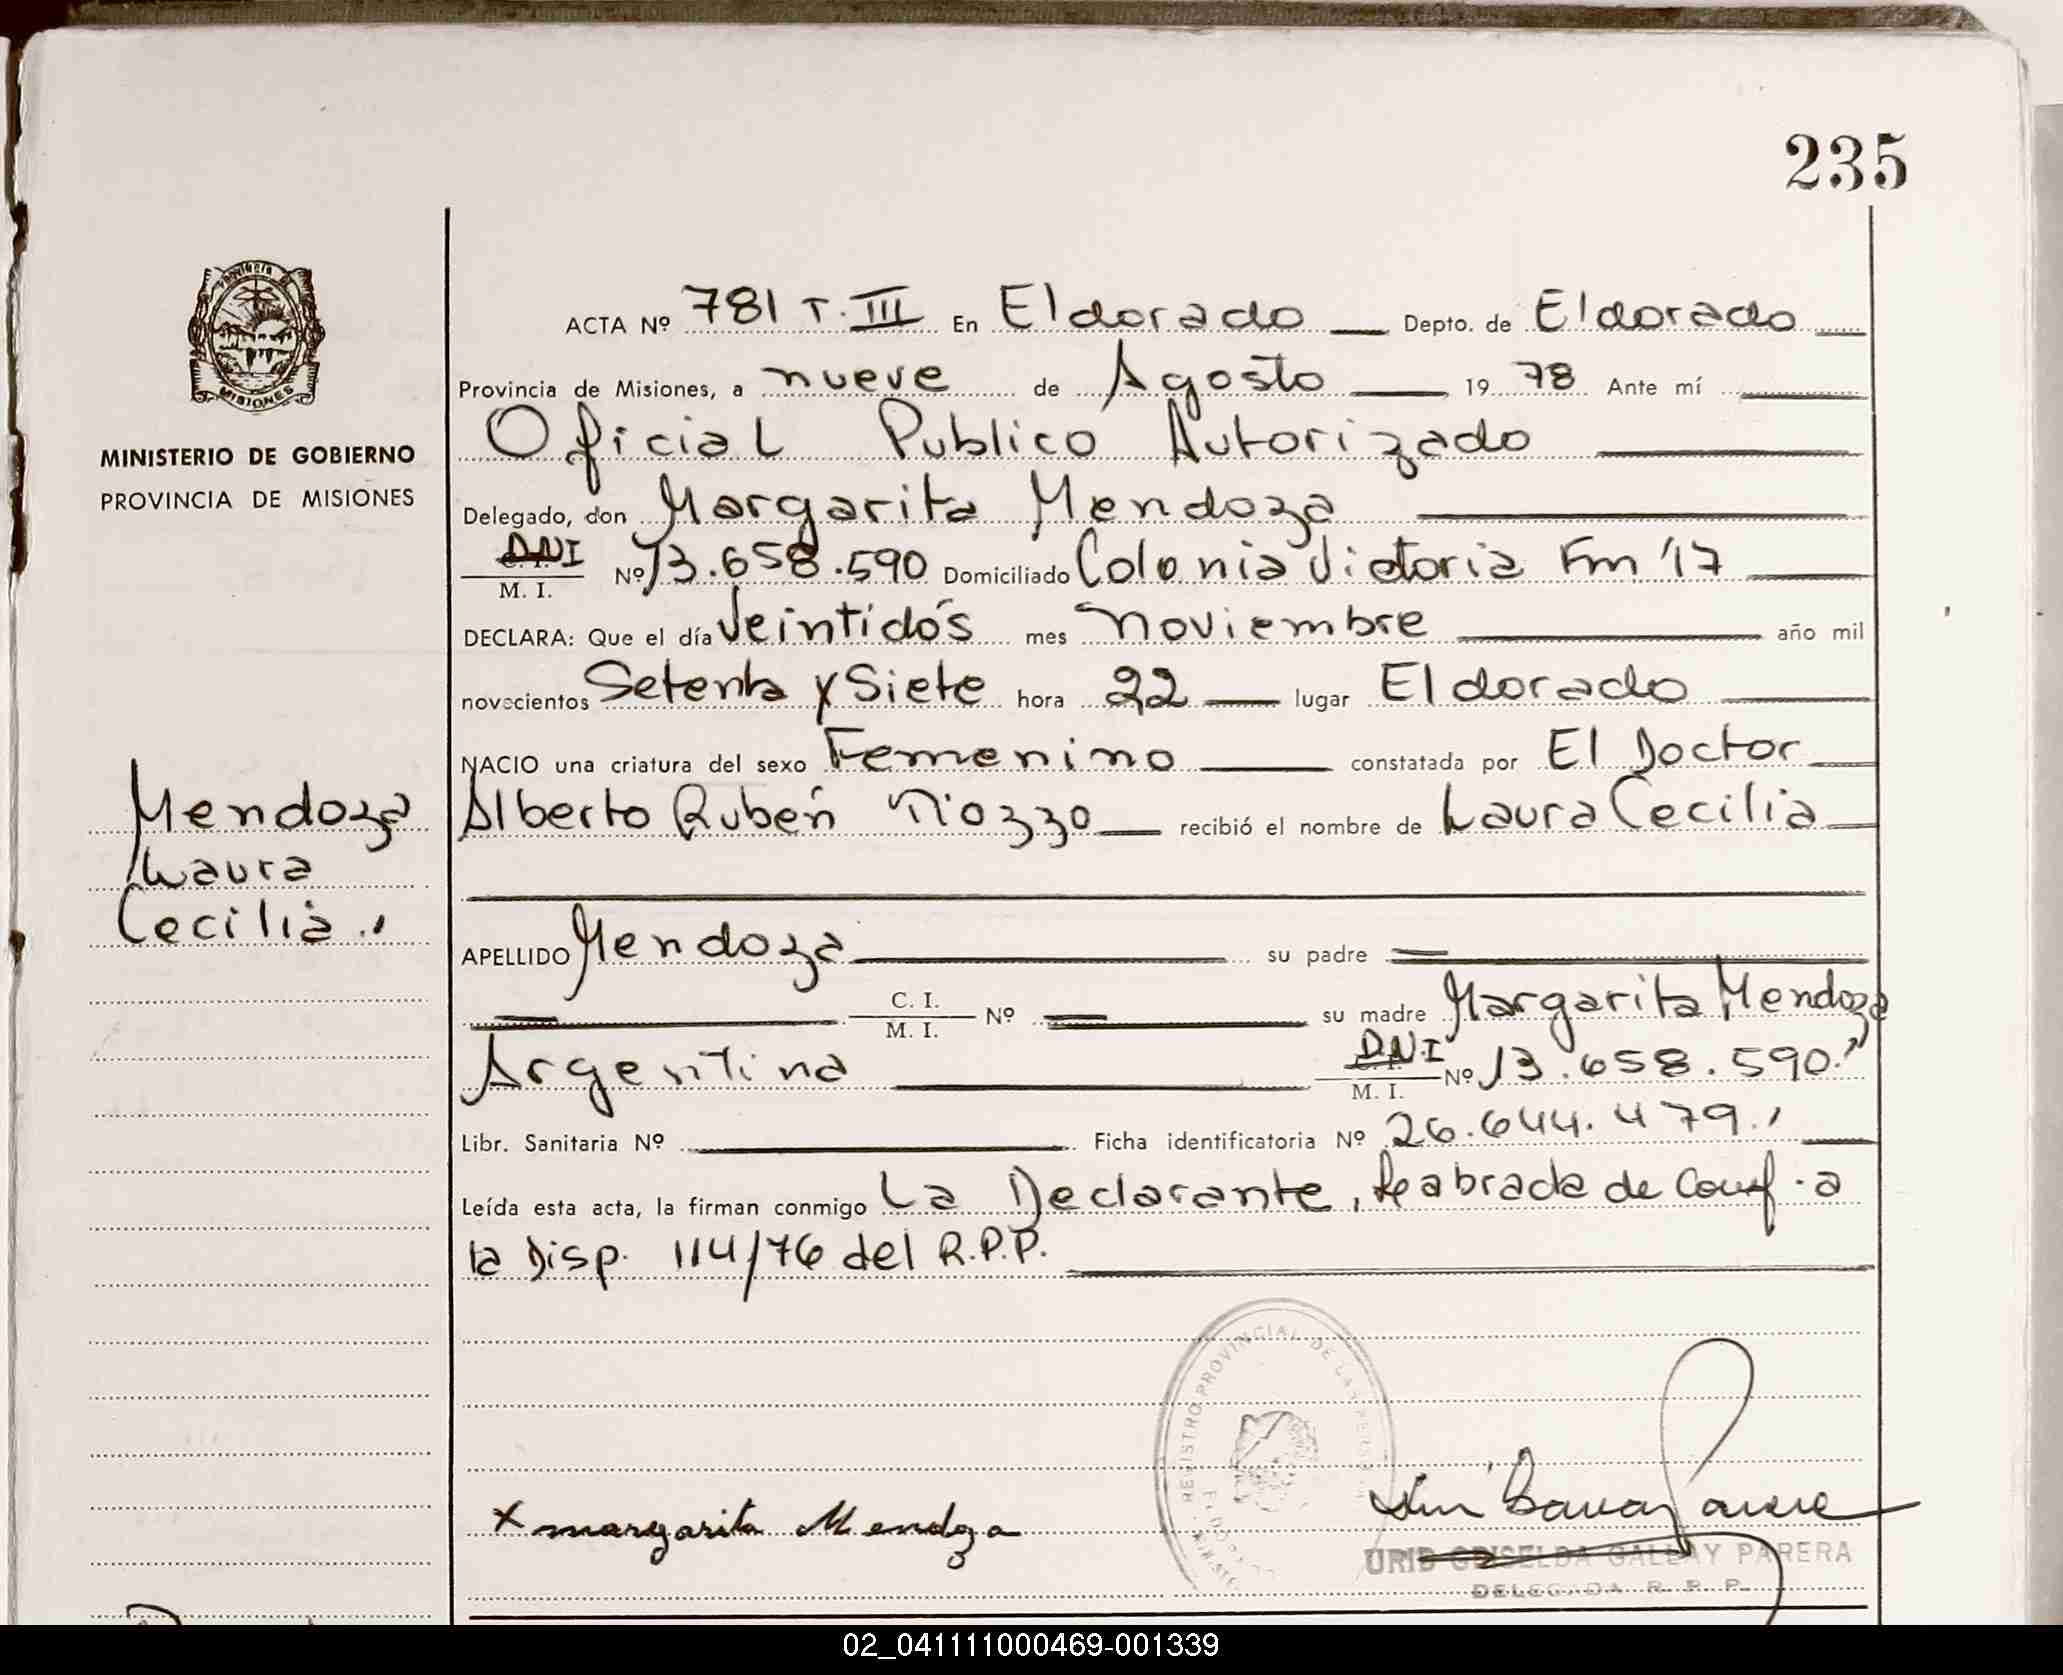 235
PROVINCIA DE
MISIONES
MINISTERIO DE GOBIERNO
PROVINCIA DE MISIONES
Mendoza
Laura
Cecilia.,
ACTA Nº 781 T. III En Eldorado Depto. de Eldorado
Provincia de Misiones, a nueve de Agosto 19 78 Ante mí
Oficial Publico Autorizado
Delegado, don Margarita Mendoza
DNI
M. I. Nº 13.658.590 Domiciliado Colonia Victoria Km 17
DECLARA: Que el día Veintidós mes noviembre año mil
novecientos Setenta y Siete hora 22 lugar Eldorado
NACIO una criatura del sexo Femenino constatada por El Doctor
Alberto Rubén Tiozzo recibió el nombre de Laura Cecilia
APELLIDO Mendoza su padre
C. I.
M. I. Nº su madre Margarita Mendoza
Argentina DNI
M. I. Nº 13.658.590.,
Libr. Sanitaria Nº Ficha identificatoria Nº 26.644.479.,
Leída esta acta, la firman conmigo La Declarante, de Conf. a
la Disp. 114/76 del R.P.P.
REGISTRO PROVINCIAL DE LAS
x margarita Mendoza
GRISELDA GALLAY PARERA
DELEGADA R. P. P.
02_041111000469-001339